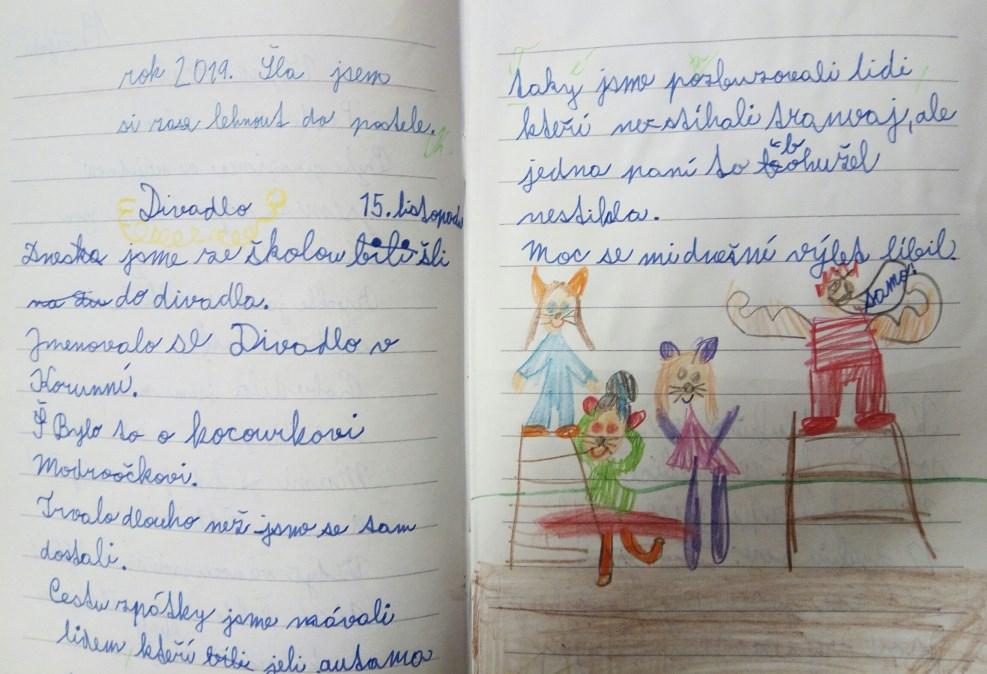 rok 2019. Šla jsem
si zase lehnout do postele.
Divadlo 15. listopadu
Dneska jsme ze školou bili šli
do divadla.
Jmenovalo se Divadlo v
Korunní.
Bylo to o kocourkovi
Modroočkovi.
Trvalo dlouho než jsme se tam
dostali.
Cestu zpátky jsme mávali
lidem kteří bili jeli autama
taky jsme pozbuzovali lidi
kteří nestíhali tramvaj, ale
jedna paní to bohužel
nestihla.
Moc se mi dnešné výlet líbil.
samos